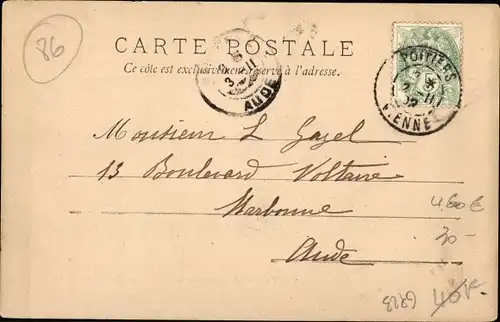 86
CARTE POSTALE
Ce côté est exclusivement réservé à l'adresse.
AUDE
POITIERS
VIENNE
Monsieur L Gazel
13 Boulevard Voltaire
Narbonne
Aude
4,60 €
30-
6223
40F